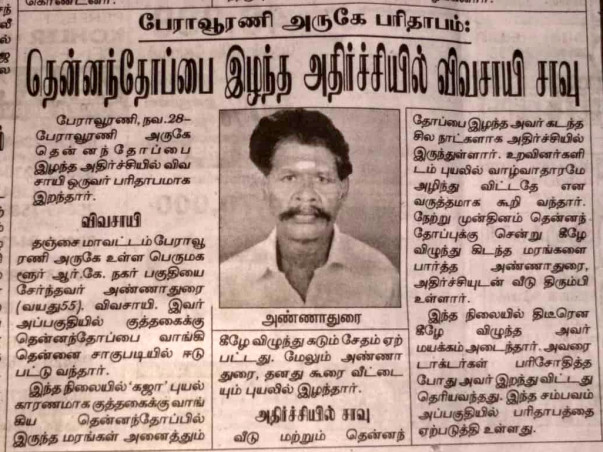 பேராவூரணி அருகே பரிதாபம்:
தென்னந்தோப்பை இழந்த அதிர்ச்சியில் விவசாயி சாவு
பேராவூரணி, நவ.28–
பேராவூரணி அருகே
தென்னந்தோப்பை
இழந்த அதிர்ச்சியில் விவ
சாயி ஒருவர் பரிதாபமாக
இறந்தார்.
விவசாயி
தஞ்சை மாவட்டம் பேராவூ
ரணி அருகே உள்ள பெருமக
ளூர் ஆர்.கே. நகர் பகுதியை
சேர்ந்தவர் அண்ணாதுரை
(வயது55). விவசாயி. இவர்
அப்பகுதியில் குத்தகைக்கு
தென்னந்தோப்பை வாங்கி
தென்னை சாகுபடியில் ஈடு
பட்டு வந்தார்.
இந்த நிலையில் 'கஜா' புயல்
காரணமாக குத்தகைக்கு வாங்
கிய தென்னந்தோப்பில்
இருந்த மரங்கள் அனைத்தும்
அண்ணாதுரை
கீழே விழுந்து கடும் சேதம் ஏற்
பட்டது. மேலும் அண்ணா
துரை, தனது கூரை வீட்டை
யும் புயலில் இழந்தார்.
அதிர்ச்சியில் சாவு
வீடு மற்றும் தென்னந்
தோப்பை இழந்த அவர் கடந்த
சில நாட்களாக அதிர்ச்சியில்
இருந்துள்ளார். உறவினர்களி
டம் புயலில் வாழ்வாதாரமே
அழிந்து விட்டதே என
வருத்தமாக கூறி வந்தார்.
நேற்று முன்தினம் தென்னந்
தோப்புக்கு சென்று கீழே
விழுந்து கிடந்த மரங்களை
பார்த்த அண்ணாதுரை,
அதிர்ச்சியுடன் வீடு திரும்பி
உள்ளார்.
இந்த நிலையில் திடீரென
கீழே விழுந்த அவர்
மயக்கம் அடைந்தார். அவரை
டாக்டர்கள் பரிசோதித்த
போது அவர் இறந்து விட்டது
தெரியவந்தது. இந்த சம்பவம்
அப்பகுதியில் பரிதாபத்தை
ஏற்படுத்தி உள்ளது.